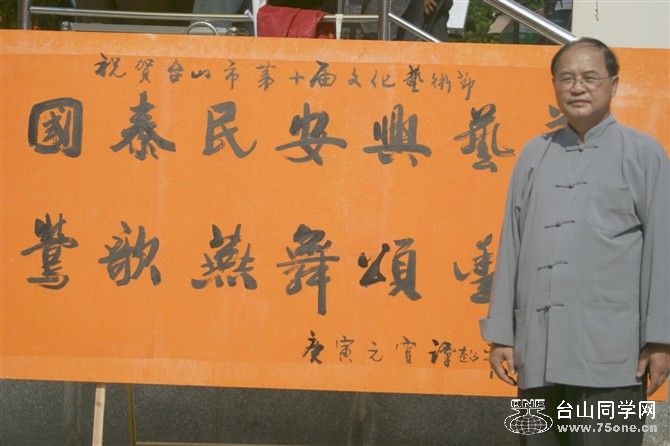 祝贺台山市第十届文化艺術節
國泰民安興藝
鶯歌燕舞頌
庚寅元宵譚
台山同学网
www.75one.cn